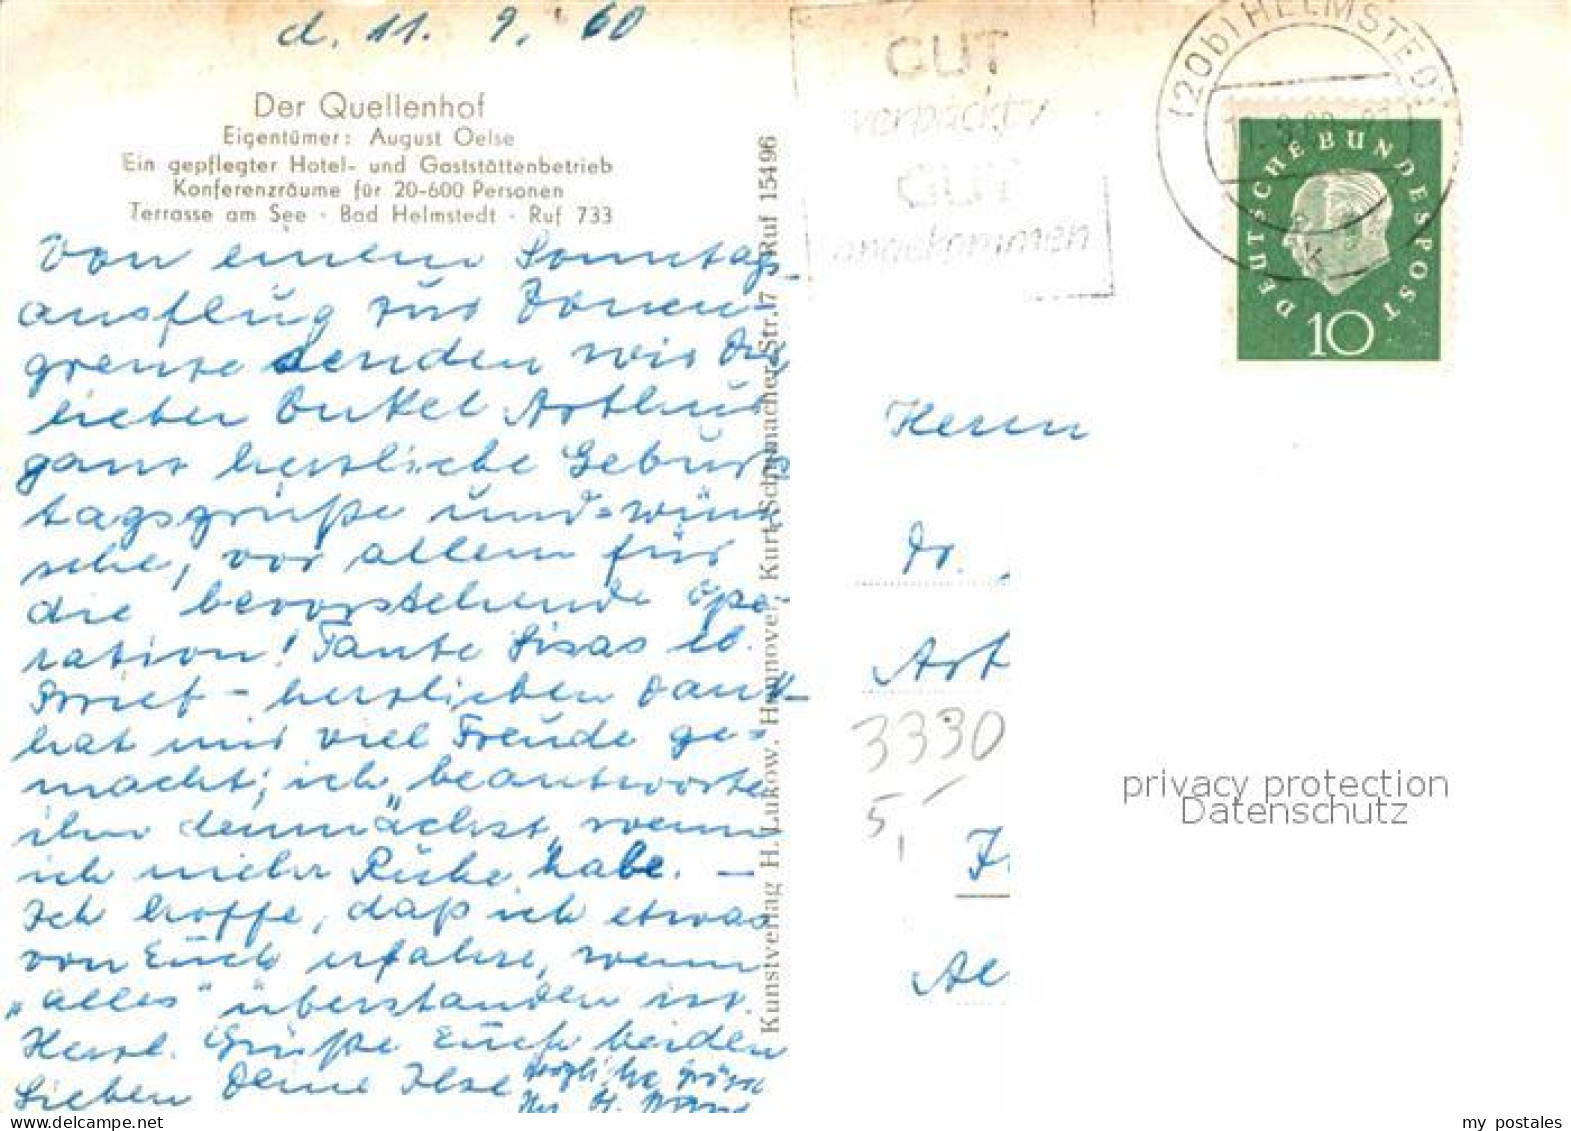 d. 11. 9. 60
Der Quellenhof
Eigentümer: August Oelse
Ein gepflegter Hotel- und Gaststättenbetrieb
Konferenzräume für 20-600 Personen
Terrasse am See · Bad Helmstedt · Ruf 733
Von einem Sonntags-
ausflug zur Zonen-
grenze senden wir Dir
lieber Onkel Arthur
ganz herzliche Geburts
tagsgrüße und =wün
sche, vor allem für
die bevorstehende Ope-
ration! Tante Lisas lb.
Brief - herzlichen Dank -
hat mir viel Freude ge-
macht; ich beantworte
ihn demnächst, wenn
ich mehr Ruhe habe. -
Ich hoffe, daß ich etwas
von Euch erfahre, wenn
„alles" überstanden ist.
Herzl. Grüße Euch beiden
Lieben Deine Ilse
herzliche Grüße
Kunstverlag H. Lukow, Hannover, Kurt-Schumacher-Str. 17 Ruf 15496
GUT
verpackt
GUT
angekommen
(20b) HELMSTEDT
k
DEUTSCHE BUNDESPOST
10
Herrn
Dr.
Art
3330
5,-
Ae
privacy protection
Datenschutz
my postales